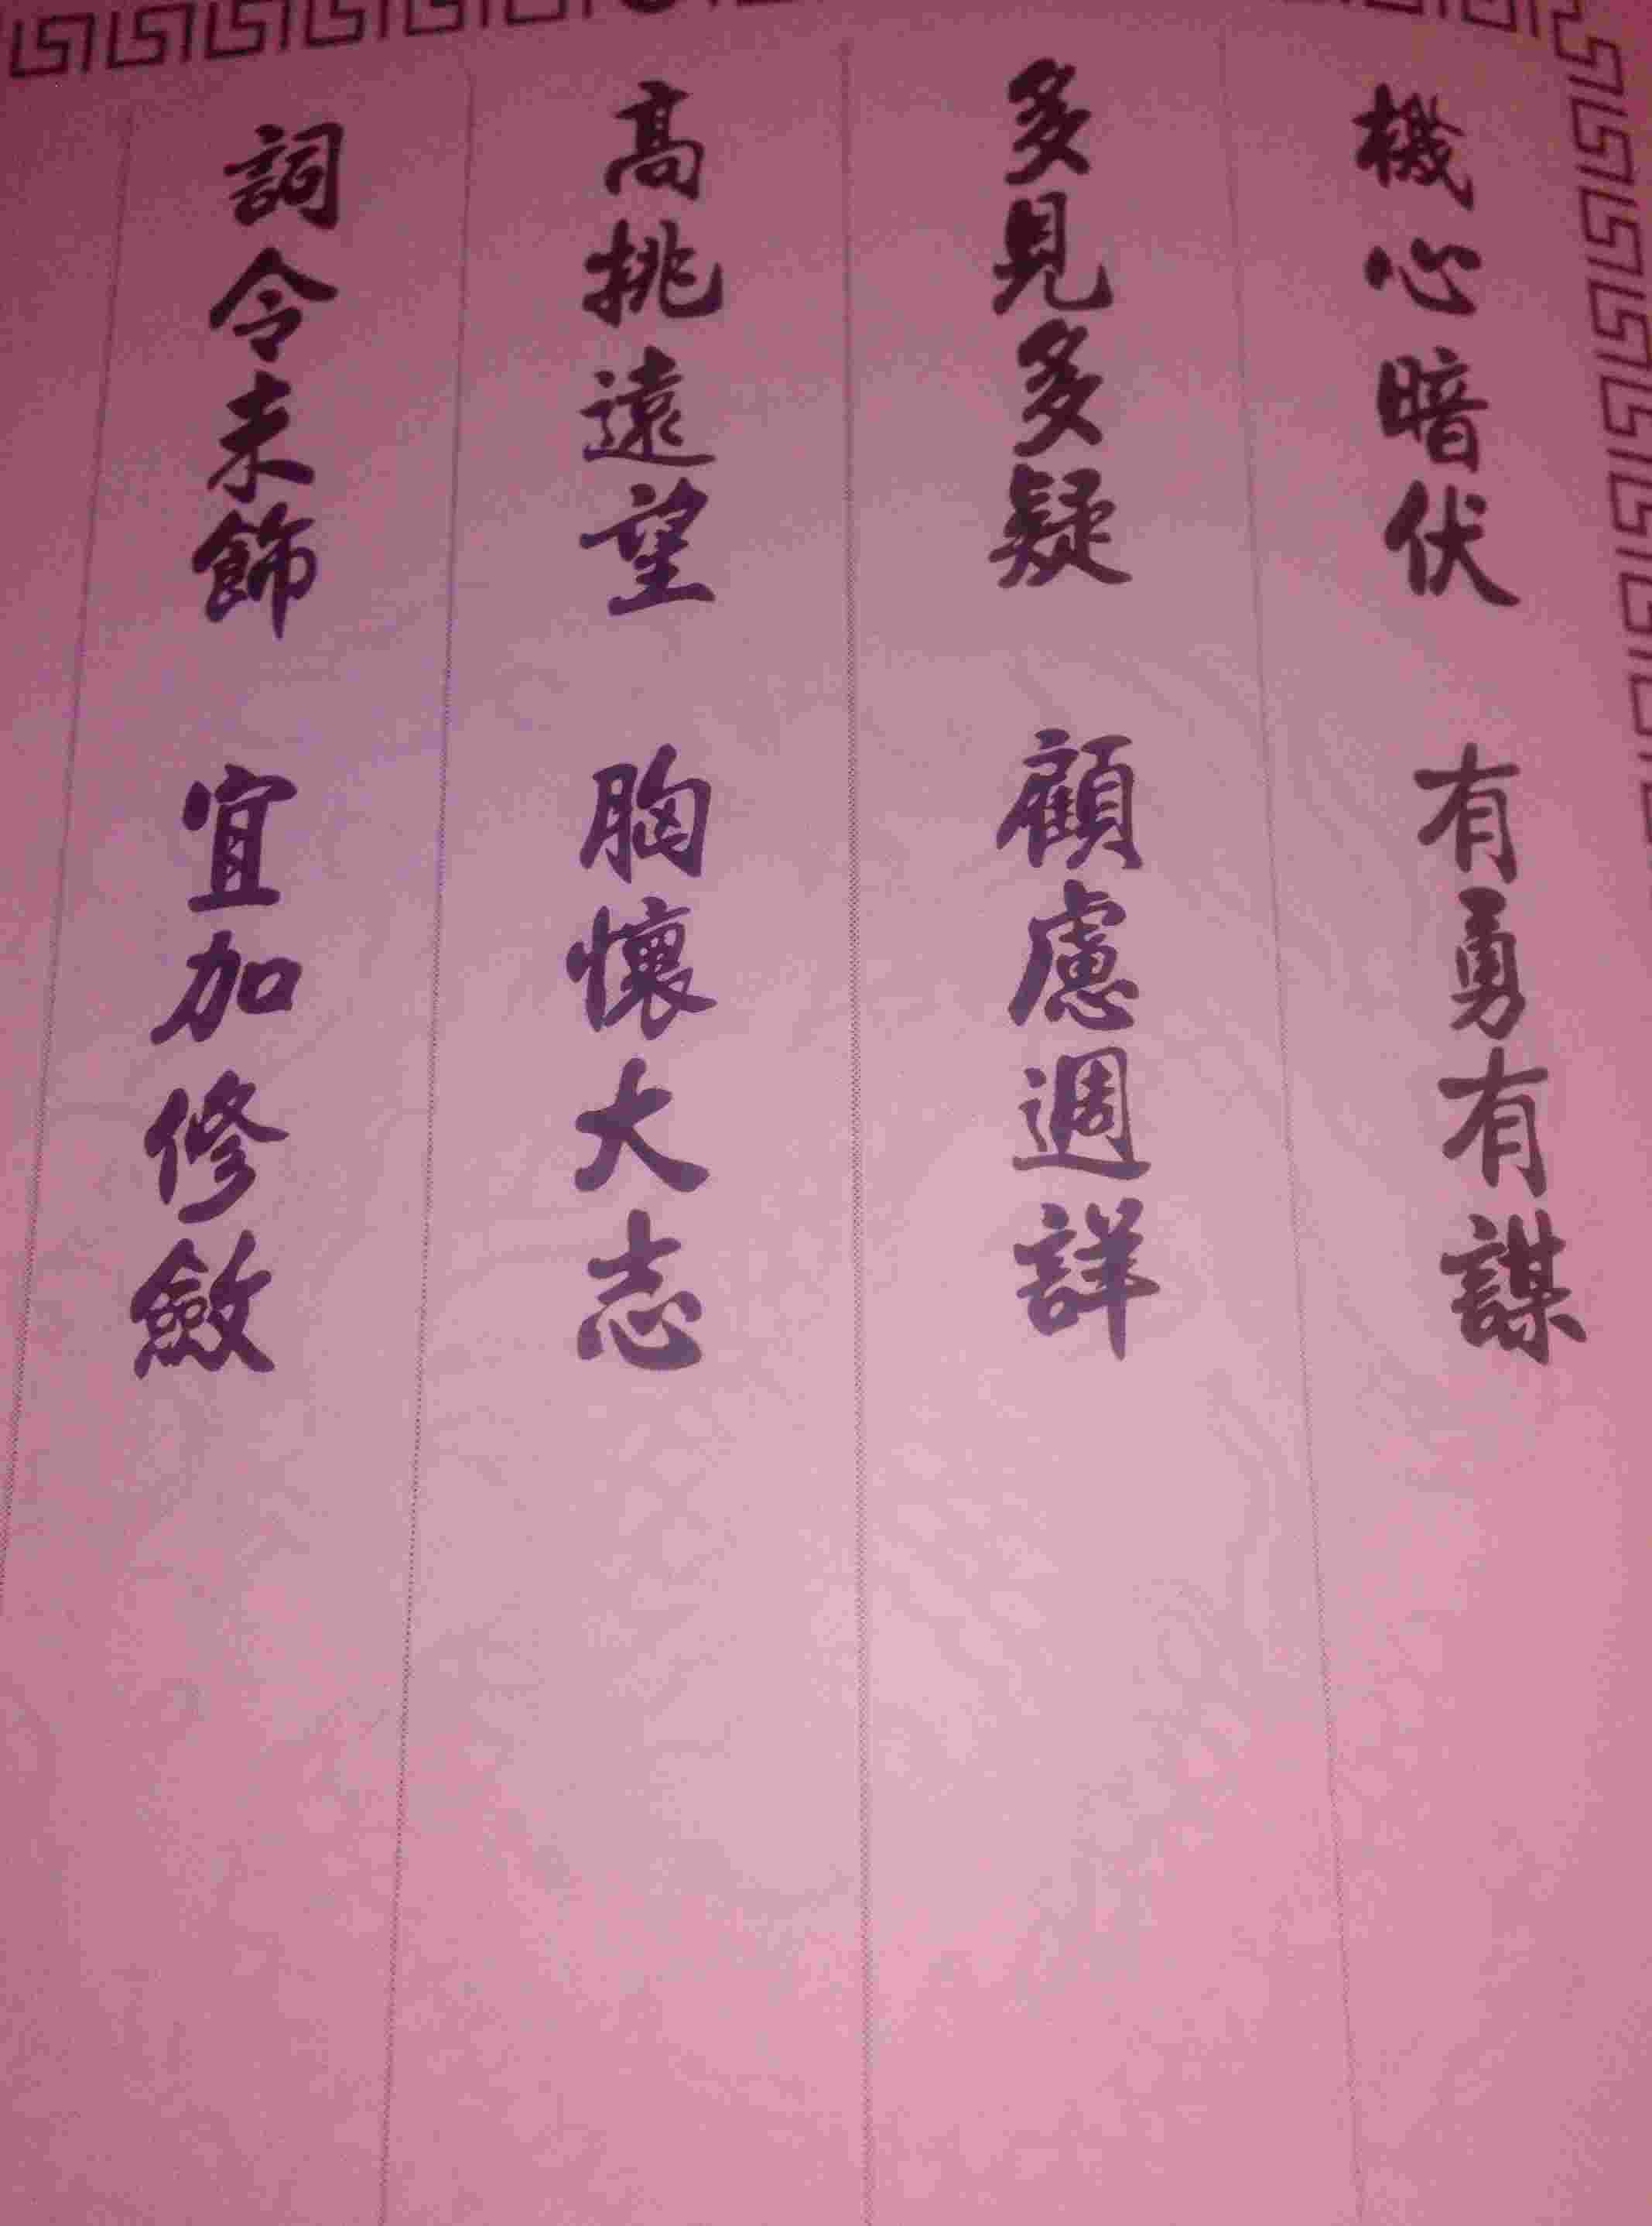 機心暗伏 有勇有謀
多見多疑 顧慮週詳
高挑遠望 胸懷大志
詞令未飾 宜加修斂